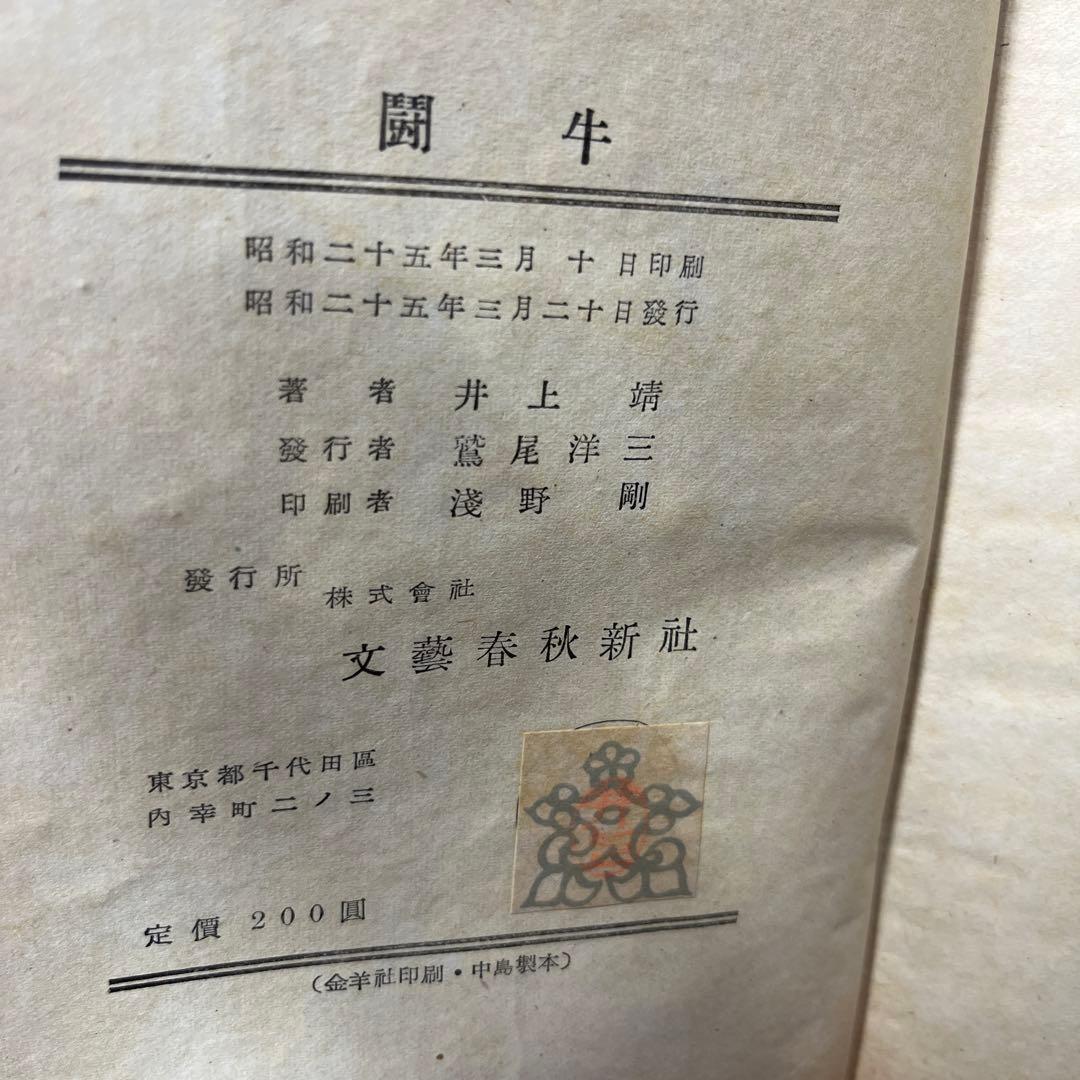 鬪牛
昭和二十五年三月十日印刷
昭和二十五年三月二十日發行
著者 井上靖
發行者 鷲尾洋三
印刷者 淺野剛
發行所 株式會社
文藝春秋新社
東京都千代田區
內幸町二ノ三
定價 200圓
(金羊社印刷・中島製本)